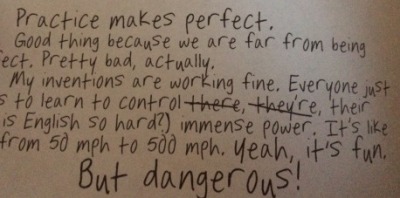 Practice makes perfect.
Good thing because we are far from being
fect. Pretty bad, actually.
My inventions are working fine. Everyone just
s to learn to control there, they're, their
is English so hard?) immense power. It's like
from 50 mph to 500 mph. Yeah, it's fun.
But dangerous!